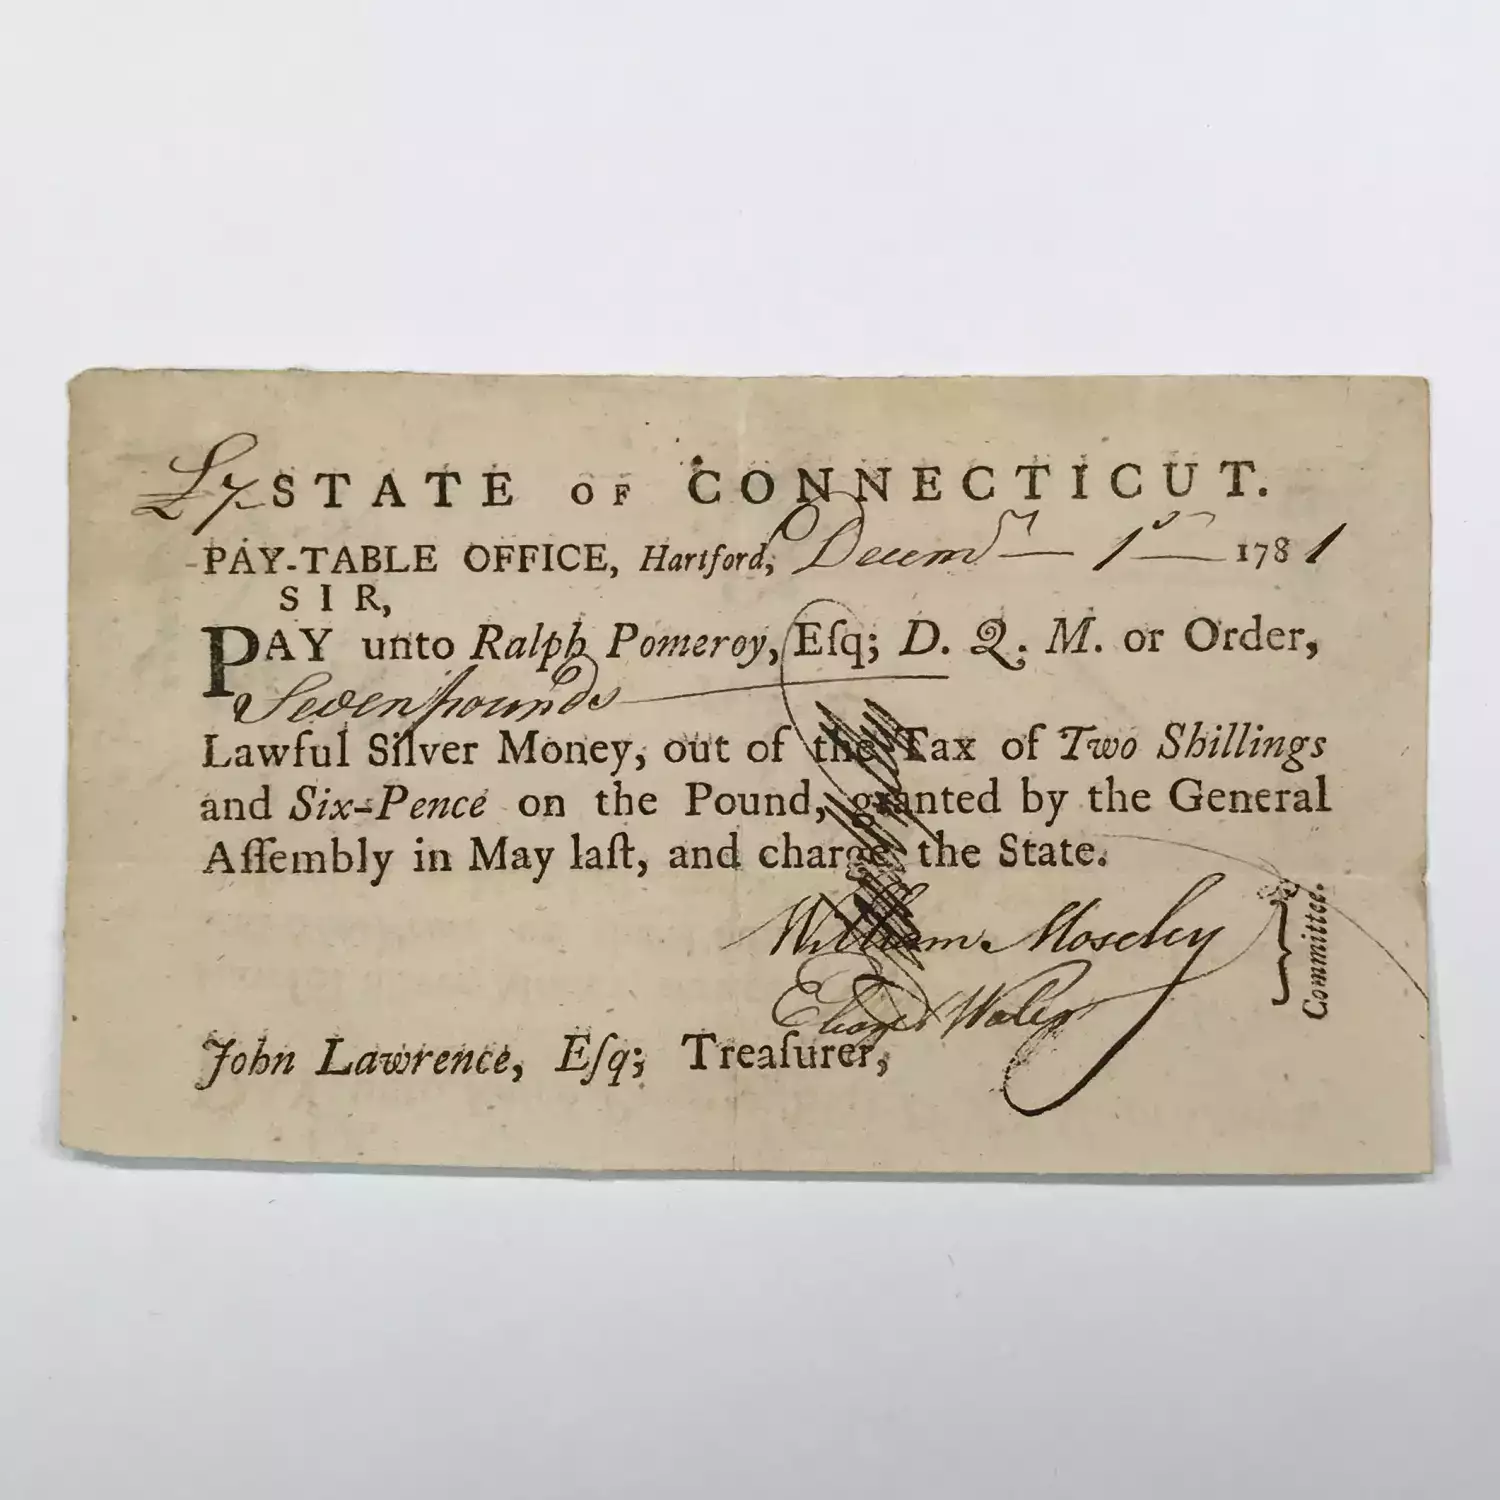 £7 STATE OF CONNECTICUT.
PAY-TABLE OFFICE, Hartford, Decemr 1st 1781
SIR,
PAY unto Ralph Pomeroy, Eſq; D. Q. M. or Order,
Seven pounds
Lawful Silver Money, out of the Tax of Two Shillings
and Six-Pence on the Pound, granted by the General
Aſſembly in May laſt, and charge the State.
William Moseley
Eleazr Wales
Committee.
John Lawrence, Eſq; Treaſurer,